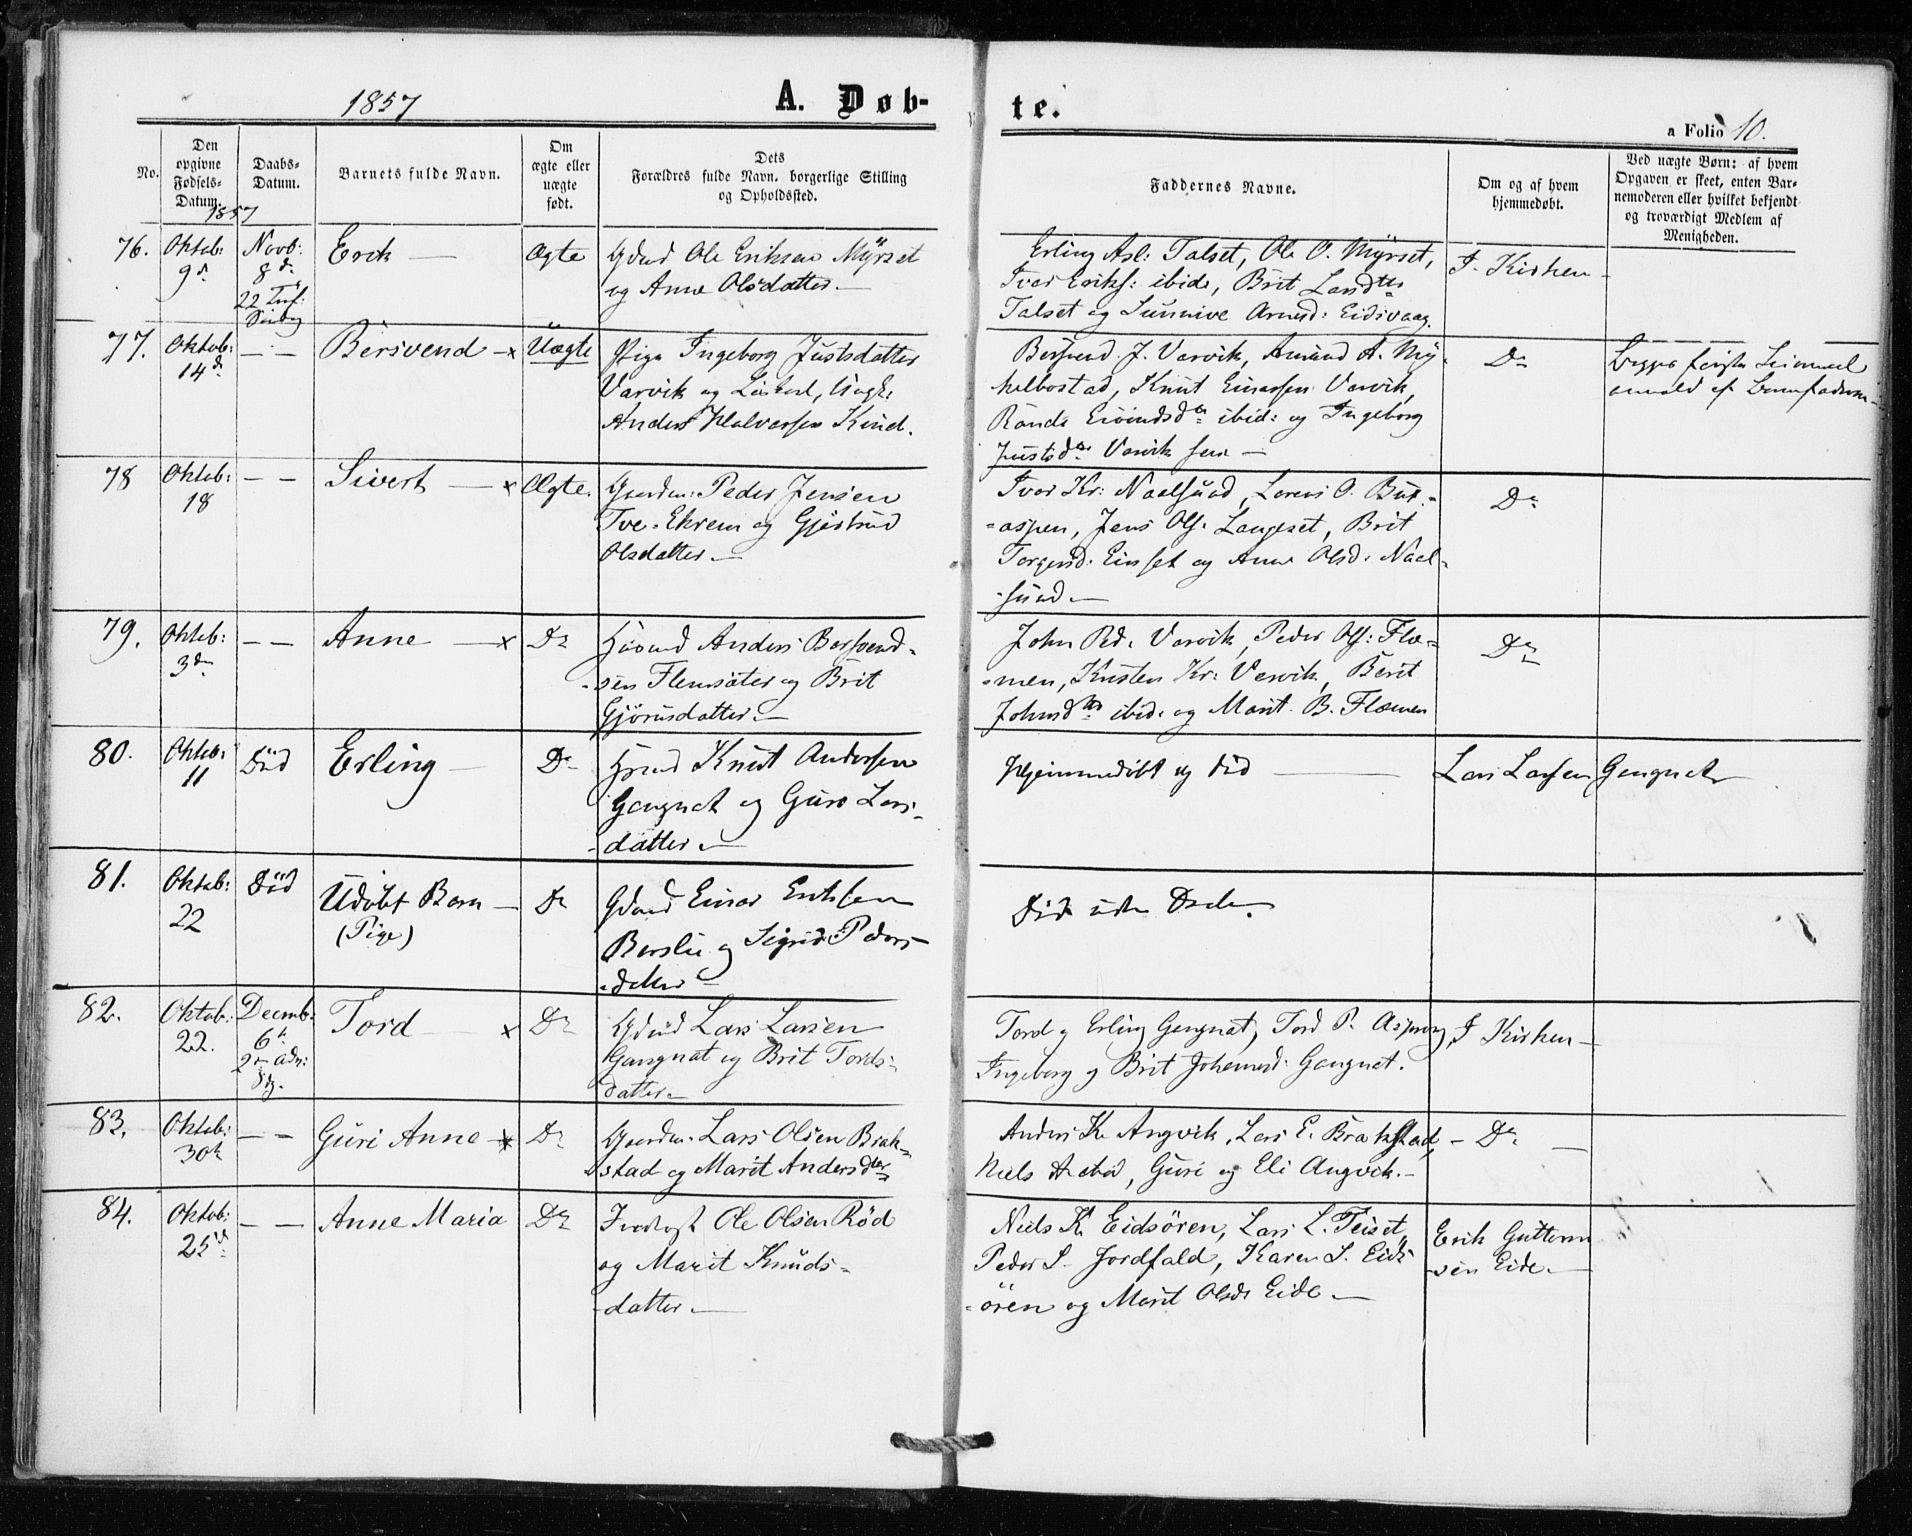 1857 A. Døb- te. a Folio 10.
No.
Den opgivne Fødsels-Datum.
Daabs-Datum.
Barnets fulde Navn.
Om ægte eller uægte født.
Dets Forældres fulde Navn, borgerlige Stilling og Opholdssted.
Faddernes Navne.
Om og af hvem hjemmedøbt.
Ved uægte Børn: af hvem Opgaven er skeet, enten Barnemoderen eller hvilket bekjendt og troværdigt Medlem af Menigheden.
1857
76. Oktob: 9d. Novb: 8d. 22 Erik — Ægte
Ole Eriksen Myrset
og Anne Olsdatter. —
Erling Asl: Talset, Ole O. Myrset,
Ivar Eriks: ibid:, Brit
Talset og Sunnive Arnesd: Eidsvaag.
I Kirken —
77. Oktob: 14d. — — Bersvend — x Uægte
Pige Ingeborg Justsdatter
Varvik og
Anders Halvorsen Kind.
Bersvend J. Varvik, Amund A. My-
helbostad, Knut Einarsen Varvik,
ibid: og Ingeborg
Varvik
Do
78 Oktob: 18 — — Sivert — x Ægte.
Peder Jensen
Tve-Ekrem og Gjertrud
Olsdatter —
Ivar Kr: Naalsund, Lorens O. Bux-
-aspen, Jens Ols: Langset, Brit
Einset og Anne Olsd: Naal-
-sund. —
Do
79. Oktob: 3 — — Anne — x Do
Huusmd Anders Bersvend-
-sen Flemsæter og Brit
Gjørusdatter. —
John Ped: Varvik, Peder Ols: Flæ-
-men, Kristen Kr: Varvik, Berit
ibid: og Marit B. Flæmen
Do
80. Oktob: 11 Død Erling — Do
Knut Andersen
Gangnat og Guro Lars-
-datter —
Hjemmedøbt og død — Lars Larsen Gangnat
81. Oktob: 22 Død Udøbt Barn — Do
(Pige)
Einar Eriksen
og Sigrid Peders-
-datter
Død uden Daab.
82. Oktob: 22. Decemb: 6te 2den Adv: Sdg. Tord — x Do
Lars Larsen
Gangnat og Brit Tords-
datter —
Tord og Erling Gangnat, Tord P.
Ingeborg og Brit Johannesd: Gangnat.
I Kirken —
83. Oktob: 30te — — Guri Anne — x Do
Lars Olsen Brak-
stad og Marit Andersdtr
Anders K. Angvik, Lars E. Brakstad,
Niels ibid, Guri og Eli Angvik. —
— Do —
84. Oktob: 25d — — Anne Maria Do
Ole Olsen Rød
og Marit Knuds-
-datter. —
Niels K. Eidsøren, Lars L. Teiset,
Peder S. Jordfald, Karen S. Eids-
-øren og Marit Olsd: Eide —
Erik Guttorm-
-sen Eide —